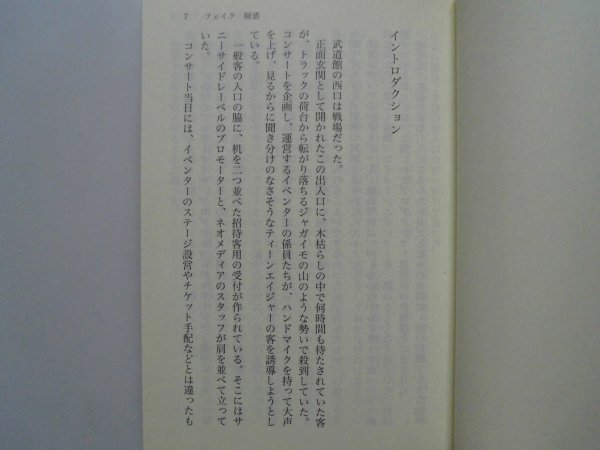 7　フェイク　疑惑
イントロダクション
武道館の西口は戦場だった。
正面玄関として開かれたこの出入口に、木枯らしの中で何時間も待たされていた客
が、トラックの荷台から転がり落ちるジャガイモの山のような勢いで殺到していた。
コンサートを企画し、運営するイベンターの係員たちが、ハンドマイクを持って大声
を上げ、見るからに聞き分けのなさそうなティーンエイジャーの客を誘導しようとし
ている。
一般客の入口の脇に、机を二つ並べた招待客用の受付が作られている。そこにはサ
ニーサイドレーベルのプロモーターと、ネオメディアのスタッフが肩を並べて立って
いた。
コンサート当日には、イベンターのステージ設営やチケット手配などとは違ったも